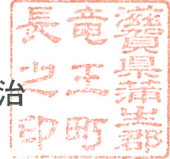 治
滋賀県蒲生郡
竜王町
長之印